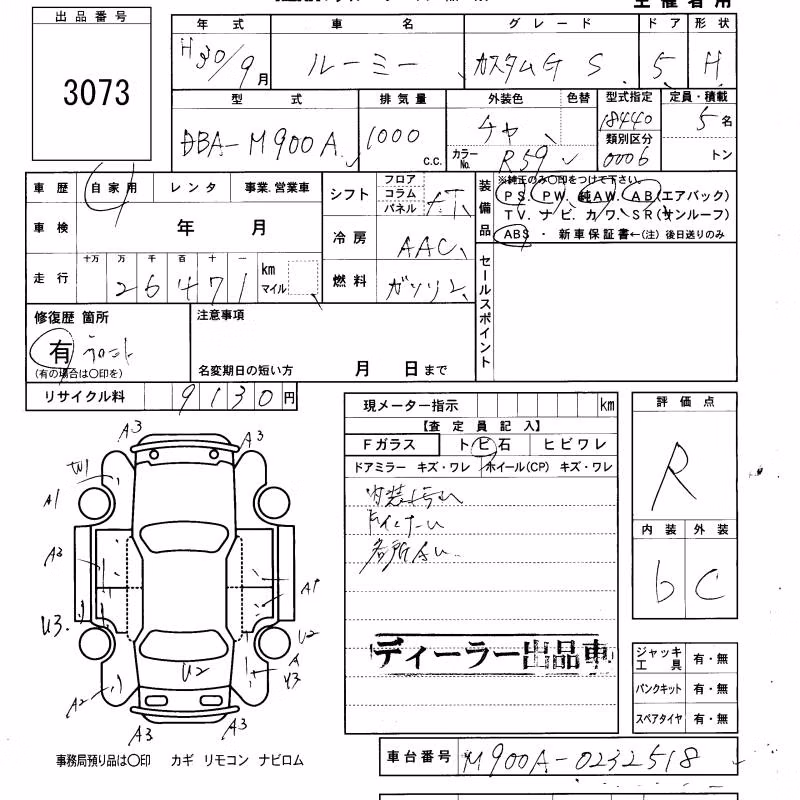 主催者用
出品番号
3073
年式 車名 グレード ドア 形状
H30/9月 ルーミー カスタムG S 5 H
型式 排気量 外装色 色替 型式指定 定員・積載
DBA-M900A 1000 c.c. チャ 18440 5名
類別区分
カラーNo. R59 0006 トン
車歴 自家用 レンタ 事業.営業車
シフト フロア コラム パネル AT
装備品
※純正のみ〇印をつけて下さい。
PS. PW. 純AW. AB(エアバック)
TV. ナビ. カワ. SR(サンルーフ)
ABS ・ 新車保証書←(注) 後日送りのみ
車検 年 月
冷房 AAC
走行 十万 万 千 百 十 一
26471 km マイル
燃料 ガソリン
セールスポイント
修復歴 箇所
有 フロント
(有の場合は〇印を)
注意事項
名変期日の短い方 月 日まで
リサイクル料 9130円
現メーター指示 km
【査定員記入】
Fガラス トビ石 ヒビワレ
ドアミラー キズ・ワレ ホイール(CP) キズ・ワレ
内装汚れ
ディーラー出品車
評価点
R
内装 外装
b C
ジャッキ 工具 有・無
パンクキット 有・無
スペアタイヤ 有・無
A3 A3
W1
A1
A2
A1
U3.
U2
U2
A
Y3
A2
A3 A3
事務局預り品は〇印 カギ リモコン ナビロム
車台番号 M900A-0232518